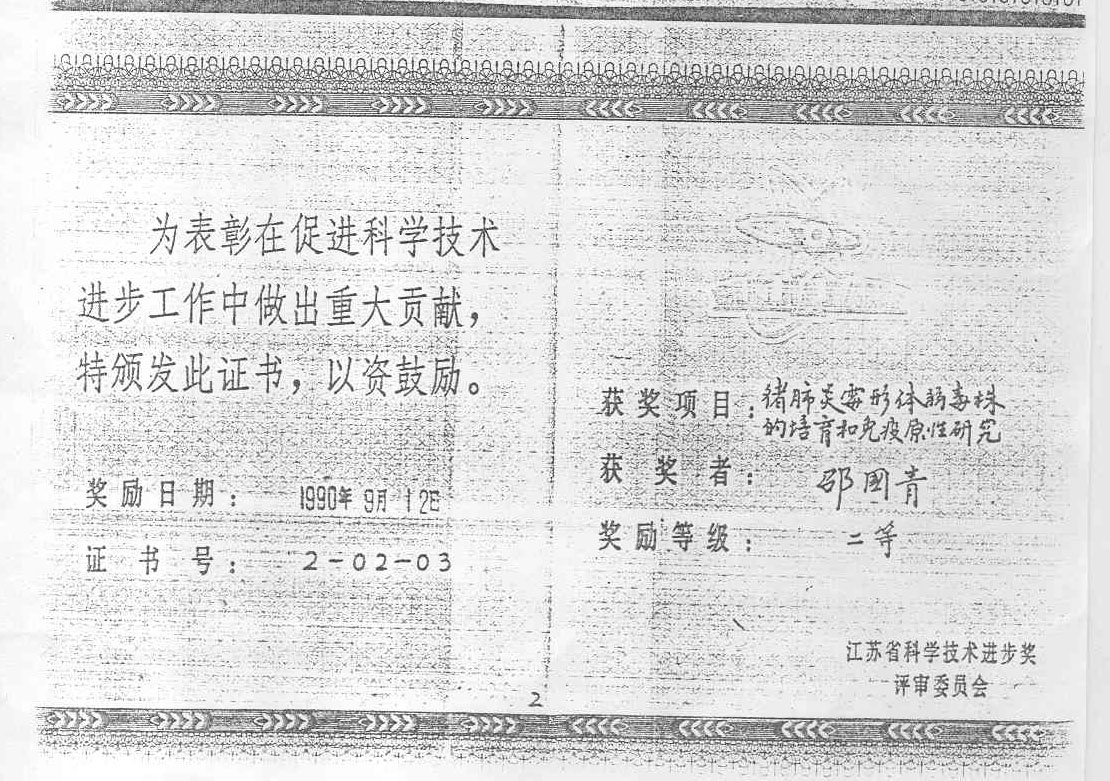 为表彰在促进科学技术
进步工作中做出重大贡献，
特颁发此证书，以资鼓励。
奖励日期： 1990年9月12日
证书号： 2-02-03
获奖项目：猪肺炎霉形体弱毒株
的培育和免疫原性研究
获奖者： 邵國青
奖励等级： 二等
江苏省科学技术进步奖
评审委员会
2